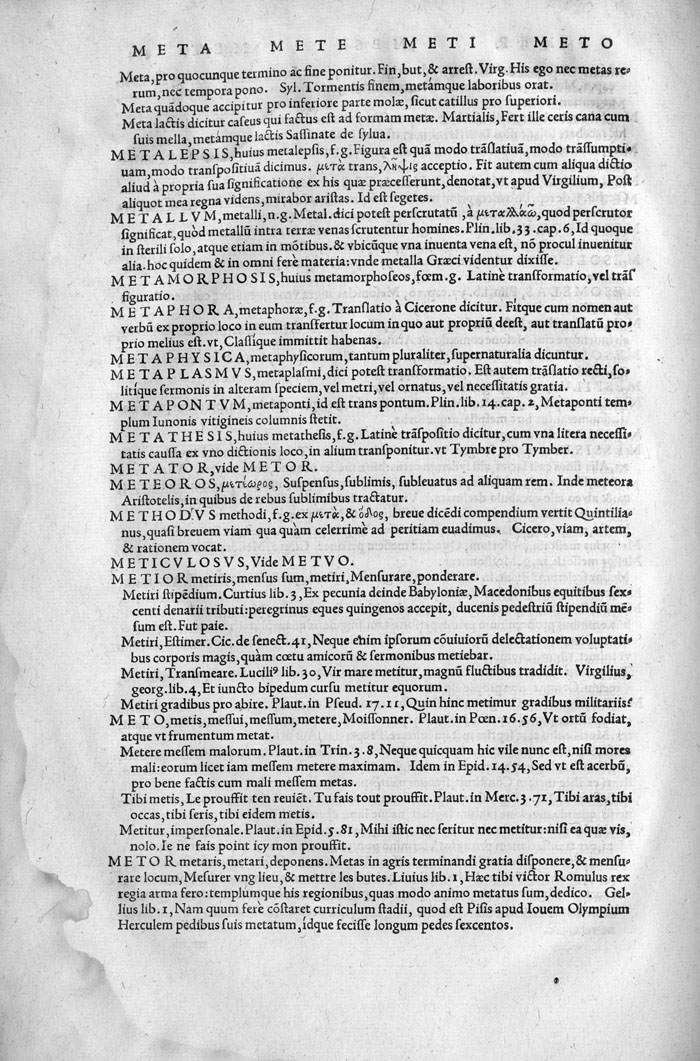 META METE METI METO
Meta, pro quocunque termino ac fine ponitur. Fin, but, & arrest. Virg. His ego nec metas re-
rum, nec tempora pono. Syl. Tormentis finem, metámque laboribus orat.
Meta quãdoque accipitur pro inferiore parte molæ, sicut catillus pro superiori.
Meta lactis dicitur caseus qui factus est ad formam metæ. Martialis, Fert ille ceris cana cum
suis mella, metámque lactis Sassinate de sylua.
METALEPSIS, huius metalepsis, f.g. Figura est quã modo trãslatiuã, modo trãssumpti-
uam, modo transpositiuã dicimus. μετὰ trans, λῆψις acceptio. Fit autem cum aliqua dictio
aliud à propria sua significatione ex his quæ præcesserunt, denotat, vt apud Virgilium, Post
aliquot mea regna videns, mirabor aristas. Id est segetes.
METALLVM, metalli, n.g. Metal. dici potest perscrutatũ, à μεταλλάω, quod perscrutor
significat, quòd metallũ intra terræ venas scrutentur homines. Plin. lib. 33. cap. 6, Id quoque
in sterili solo, atque etiam in mõtibus. & vbicũque vna inuenta vena est, nõ procul inuenitur
alia. hoc quidem & in omni ferè materia: vnde metalla Græci videntur dixisse.
METAMORPHOSIS, huius metamorphoseos, fœm.g. Latinè transformatio, vel trãs-
figuratio.
METAPHORA, metaphoræ, f.g. Translatio à Cicerone dicitur. Fitque cum nomen aut
verbũ ex proprio loco in eum transfertur locum in quo aut propriũ deest, aut translatũ pro-
prio melius est. vt, Classique immittit habenas.
METAPHYSICA, metaphysicorum, tantum pluraliter, supernaturalia dicuntur.
METAPLASMVS, metaplasmi, dici potest transformatio. Est autem trãslatio recti, so-
litíque sermonis in alteram speciem, vel metri, vel ornatus, vel necessitatis gratia.
METAPONTVM, metaponti, id est trans pontum. Plin. lib. 14. cap. 2, Metaponti tem-
plum Iunonis vitigineis columnis stetit.
METATHESIS, huius metathesis, f.g. Latinè trãspositio dicitur, cum vna litera necessi-
tatis caussa ex vno dictionis loco, in alium transponitur. vt Tymbre pro Tymber.
METATOR, vide METOR.
METEOROS, μετέωρος, Suspensus, sublimis, subleuatus ad aliquam rem. Inde meteora
Aristotelis, in quibus de rebus sublimibus tractatur.
METHODVS methodi, f.g. ex μετὰ, & ὁδος, breue dicẽdi compendium vertit Quintilia-
nus, quasi breuem viam qua quàm celerrimè ad peritiam euadimus. Cicero, viam, artem,
& rationem vocat.
METICVLOSVS, Vide METVO.
METIOR metiris, mensus sum, metiri, Mensurare, ponderare.
Metiri stipẽdium. Curtius lib. 3, Ex pecunia deinde Babyloniæ, Macedonibus equitibus sex-
centi denarii tributi: peregrinus eques quingenos accepit, ducenis pedestriũ stipendiũ mẽ-
sum est. Fut paie.
Metiri, Estimer. Cic. de senect. 41, Neque enim ipsorum cõuiuiorũ delectationem voluptati-
bus corporis magis, quàm cœtu amicorũ & sermonibus metiebar.
Metiri, Transmeare. Luciliꝰ lib. 30, Vir mare metitur, magnũ fluctibus tradidit. Virgilius,
georg. lib. 4, Et iuncto bipedum cursu metitur equorum.
Metiri gradibus pro abire. Plaut. in Pseud. 17. 11, Quin hinc metimur gradibus militariis?
METO, metis, messui, messum, metere, Moissonner. Plaut. in Pœn. 16. 56, Vt ortũ fodiat,
atque vt frumentum metat.
Metere messem malorum. Plaut. in Trin. 3. 8, Neque quicquam hic vile nunc est, nisi mores
mali: eorum licet iam messem metere maximam. Idem in Epid. 14. 54, Sed vt est acerbũ,
pro bene factis cum mali messem metas.
Tibi metis, Le prouffit ten reuiẽt. Tu fais tout prouffit. Plaut. in Merc. 3. 71, Tibi aras, tibi
occas, tibi seris, tibi eidem metis.
Metitur, impersonale. Plaut. in Epid. 5. 81, Mihi istic nec seritur nec metitur: nisi ea quæ vis,
nolo. Ie ne fais point icy mon prouffit.
METOR metaris, metari, deponens. Metas in agris terminandi gratia disponere, & mensu-
rare locum, Mesurer vng lieu, & mettre les butes. Liuius lib. 1, Hæc tibi victor Romulus rex
regia arma fero: templumque his regionibus, quas modo animo metatus sum, dedico. Gel-
lius lib. 1, Nam quum ferè cõstaret curriculum stadii, quod est Pisis apud Iouem Olympium
Herculem pedibus suis metatum, ídque fecisse longum pedes sexcentos.